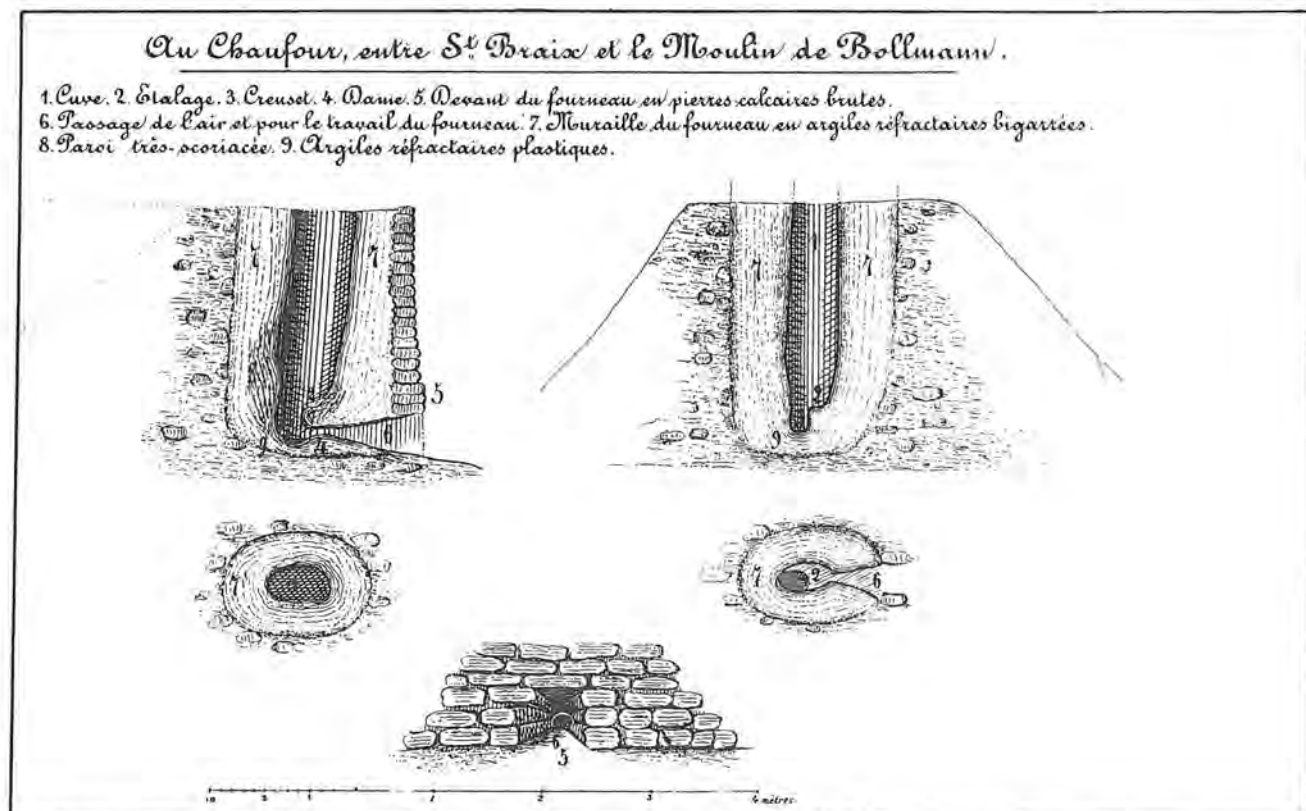 Au Chaufour, entre St. Braix et le Moulin de Bollmann.
1. Cuve. 2. Etalage. 3. Creuset. 4. Dame. 5. Devant du fourneau en pierres calcaires brutes.
6. Passage de l'air et pour le travail du fourneau. 7. Muraille du fourneau en argiles réfractaires bigarrées.
8. Paroi très-scoriacée. 9. Argiles réfractaires plastiques.
7 7
5
6
9 4
7 7
9
7 2 6
6
5
1 2 3 4 mètres.